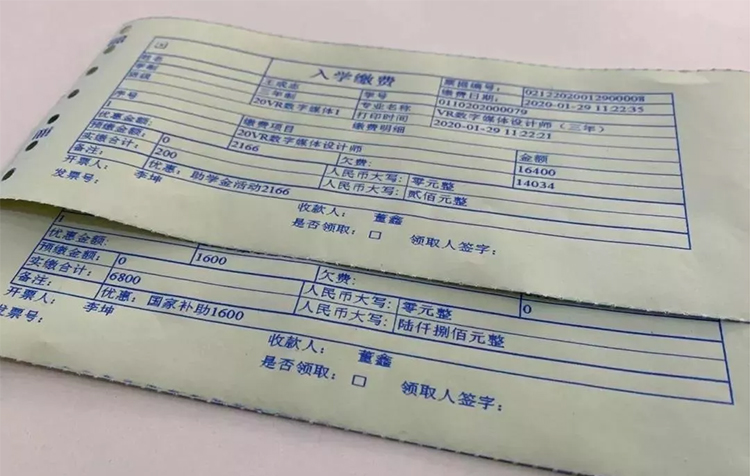 入学缴费
票据编号: 02122020012900008
姓名 王成志 学号 缴费日期: 2020-01-29 11:22:35
学制 三年制 专业名称 0110202000079
班级 20VR数字媒体1 打印时间 VR数字媒体设计师(三年)
序号 缴费项目 缴费明细 2020-01-29 11:22:21
1 20VR数字媒体设计师 金额
优惠金额: 2166 16400
预缴金额: 0 欠费: 14034
实缴合计: 200 人民币大写: 零元整
备注: 优惠: 助学金活动2166 人民币大写: 贰佰元整
开票人: 李坤 收款人: 董鑫
发票号: 是否领取: □ 领取人签字:
1
优惠金额: 1600
预缴金额: 0 欠费: 0
实缴合计: 6800 人民币大写: 零元整
备注: 优惠: 国家补助1600 人民币大写: 陆仟捌佰元整
开票人: 李坤 收款人: 董鑫
发票号: 是否领取: □ 领取人签字: